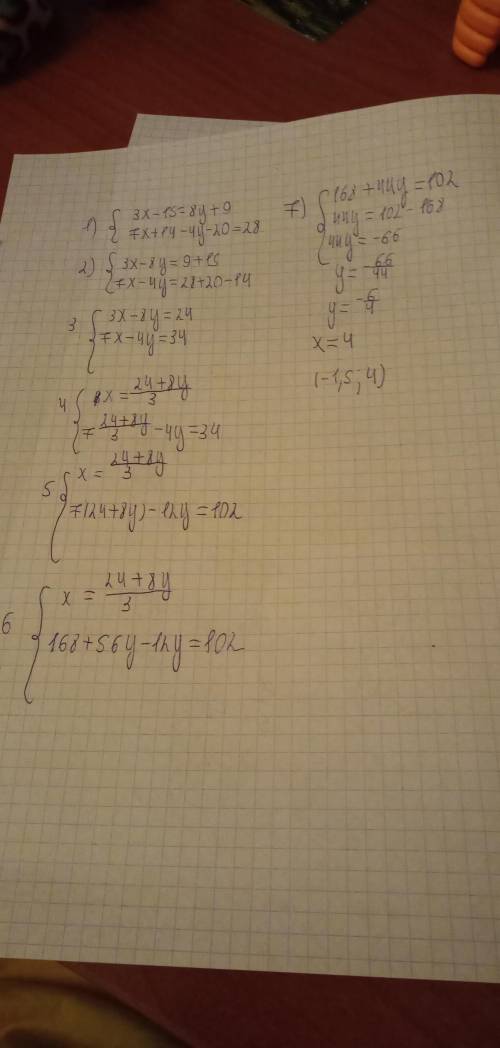 1) { 3x-15=8y+9
7x+14-4y-20=28
2) { 3x-8y=9+15
7x-4y=28+20-14
3 { 3x-8y=24
7x-4y=34
4 { x = \frac{24+8y}{3}
7 \frac{24+8y}{3} -4y=34
5 { x = \frac{24+8y}{3}
7(24+8y)-12y=102
6 { x = \frac{24+8y}{3}
168+56y-12y=102
7) { 168+44y=102
44y=102-168
44y=-66
y=-\frac{66}{44}
y=-\frac{6}{4}
x=4
(-1,5; 4)